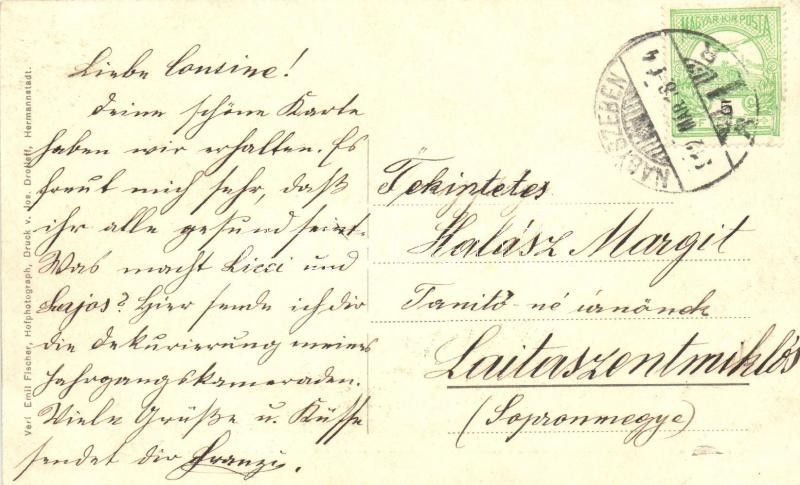 Liebe Cousine!
Deine schöne Karte
haben wir erhalten. Es
freut mich sehr, daß
ihr alle gesund seint.
Was macht Licci und
Lajos? Hier sende ich dir
die Dekurierung meines
Jahrgangskameraden.
Viele Grüße u. Küsse
sendet dir Franzi.
Verl. Emil Fischer, Hofphotograph, Druck v. Jos. Drotleff, Hermannstadt.
MAGYAR KIR. POSTA
NAGYSZEBEN
MAR
5
Tekintetes
Halász Margit
Tanitó né úrnönek
Lajtaszentmiklós
(Sopronmegye)